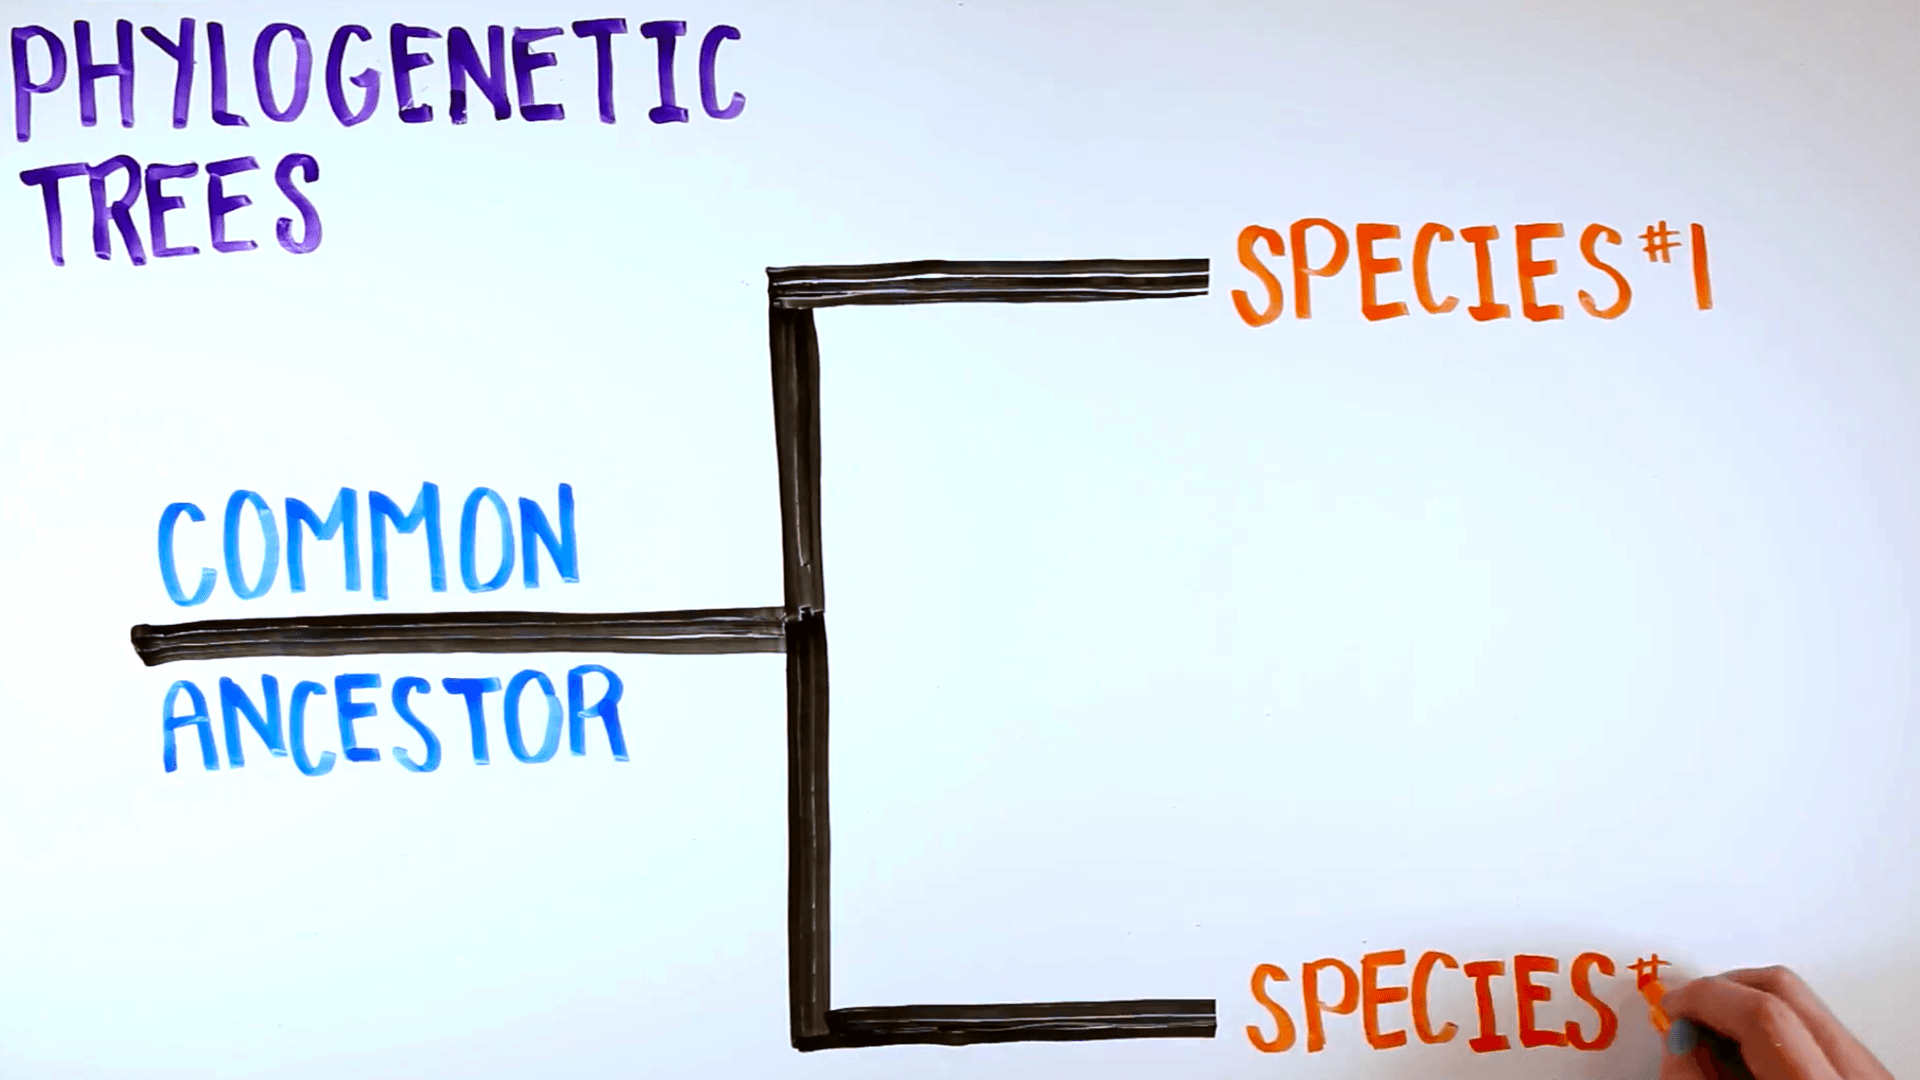 PHYLOGENETIC
TREES
SPECIES #1
COMMON
ANCESTOR
SPECIES #